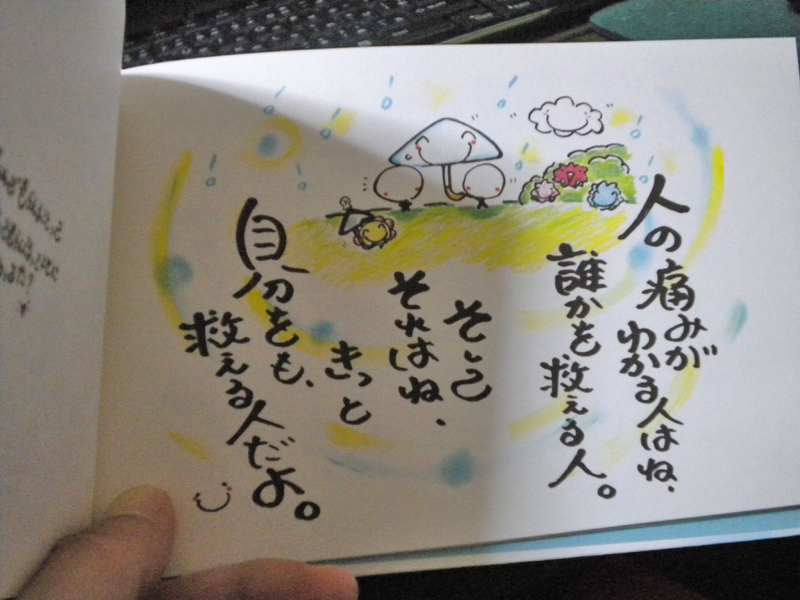 人の痛みが
わかる人はね、
誰かを救える人。
そして
それはね、
きっと
自分をも、
救える人だよ。